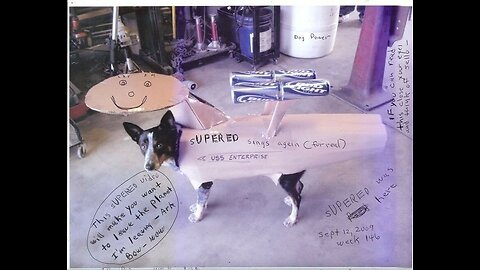 Dog Power
BUD LIGHT
BUD LIGHT
If you can read
this close your eyes
sUPERED sings again (for real)
<< USS ENTERPRISE
This sUPERED video
will make you want
to leave the planet
I'm leaving - Ark
Bow-wow
sUPERED was
here
Sept 12, 2009
week 146